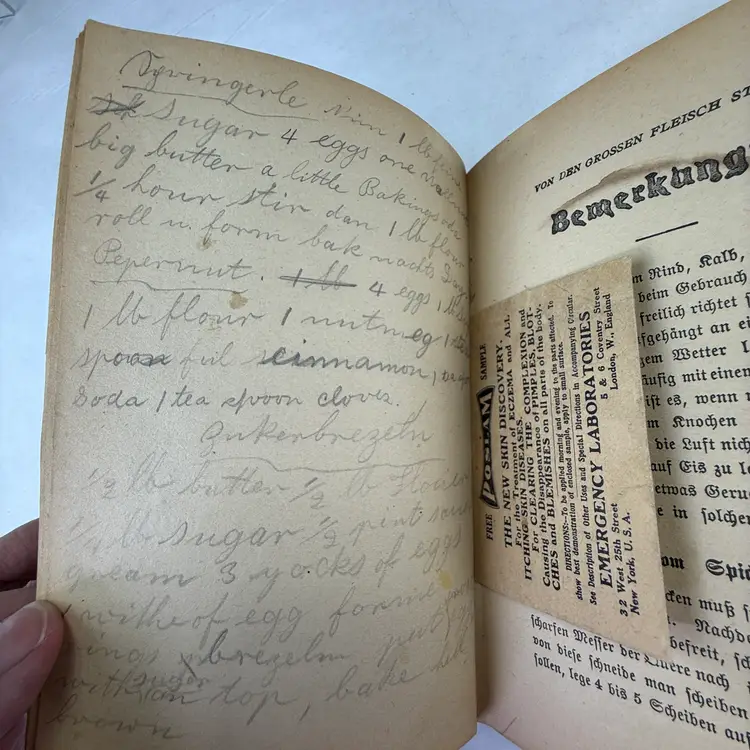 Springerle Nim 1 lb fine
sugar 4 eggs one
big butter a little Baking
1/4 hour stir dan 1 lb flour
roll u. form bak nachts
Pepernut. 1 lb 4 eggs 1 lb
1 lb flour 1 nutmeg 1
spoon ful cinnamon, 1
Soda 1 tea spoon cloves.
Zukerbrezeln
1/2 lb butter 1/2 lb flour
1/4 lb sugar 1/2 pint sour
gream 3 yocks of eggs
withe of egg forme
rings brezeln put egg
with sugar on top, bake till
brown
VON DEN GROSSEN FLEISCH ST
Bemerkung
m Rind, Kalb,
beim Gebrauch
freilich richtet s
fgehängt an ei
zem Wetter l
ufig mit einem
ist es, wenn
Knochen
die Luft nich
auf Eis zu le
etwas Geru
e in solchen
om Spic
cken muß s
t. Nachde
befreit, sch
scharfen Messer der Quere nach
von diese schneide man scheiben
sollen, lege 4 bis 5 Scheiben auf
FREE POSLAM SAMPLE
THE NEW SKIN DISCOVERY.
For the Treatment of ECZEMA and ALL
ITCHING SKIN DISEASES.
FOR CLEARING THE COMPLEXION and
Causing the Disappearance of PIMPLES, BLOT-
CHES and BLEMISHES on all parts of the body.
DIRECTIONS:-To be applied morning and evening to the parts affected. To
show best demonstration of enclosed sample, apply to small surface.
See Description of Other Uses and Special Directions in Accompanying Circular.
EMERGENCY LABORATORIES
32 West 25th Street
New York, U. S. A.
5 & 6 Coventry Street
London, W., England